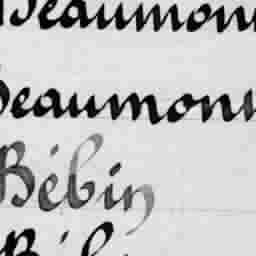 Beaumon
Beaumon
Bébin